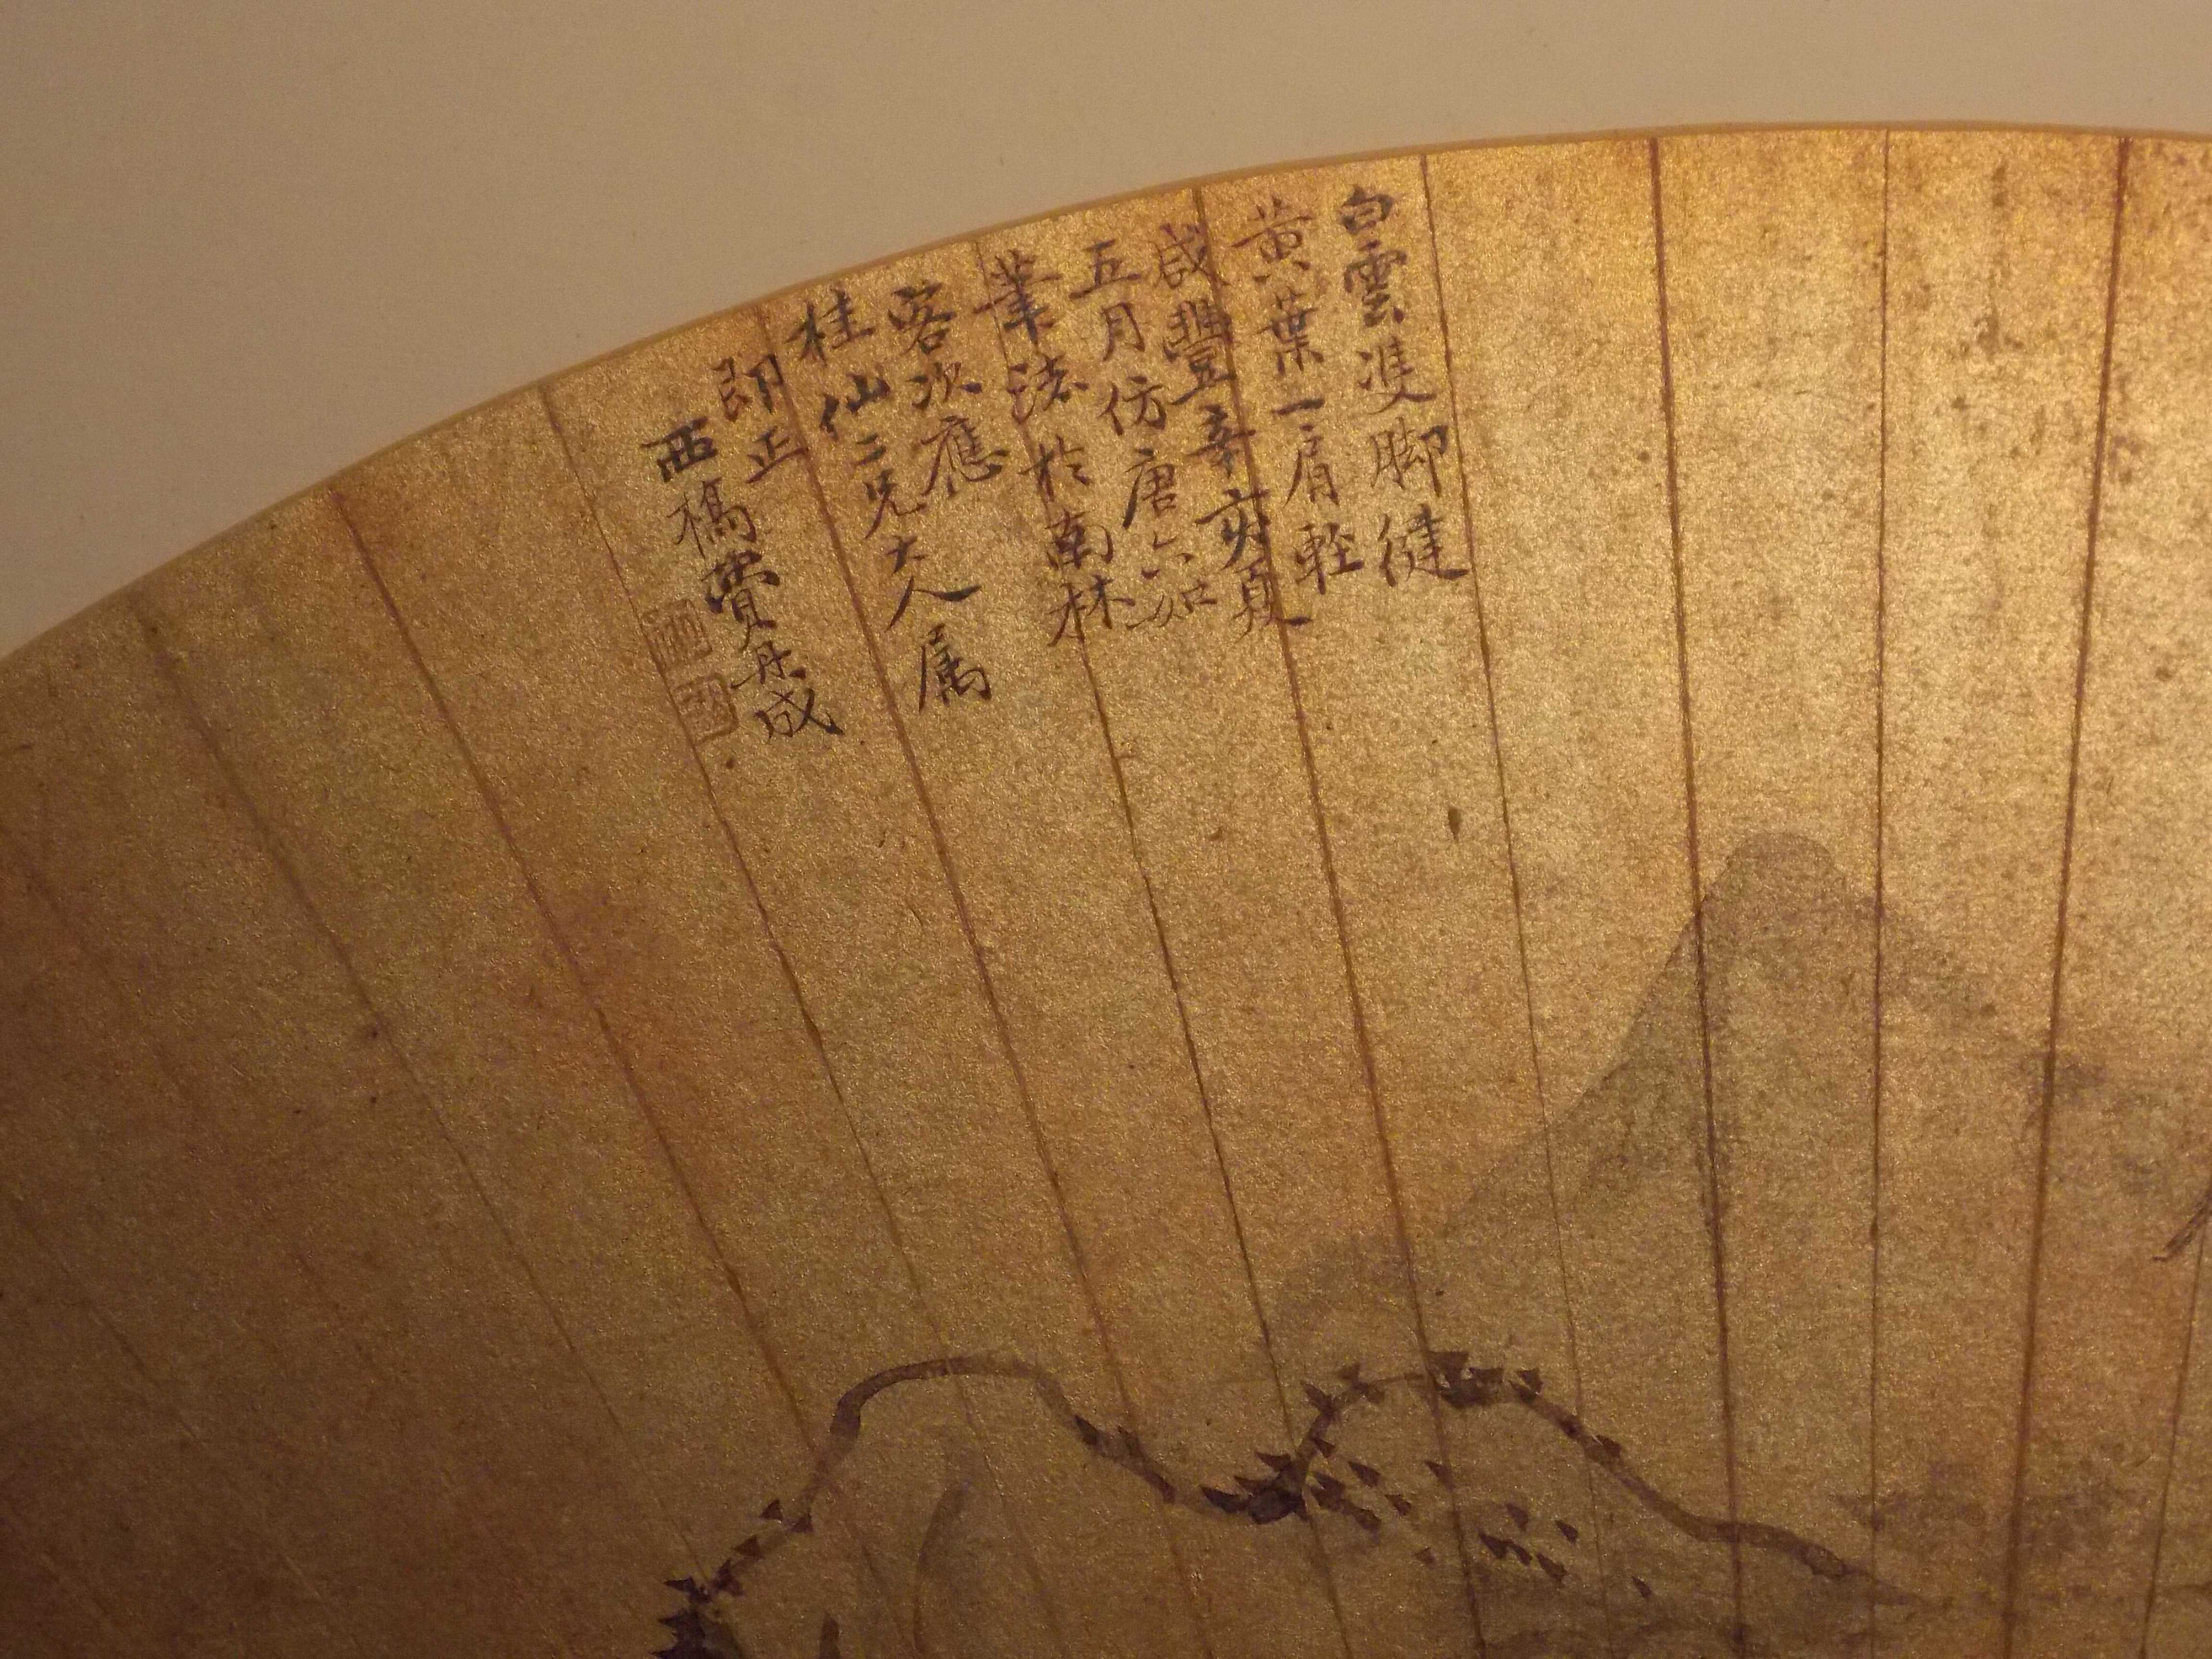 白雲雙脚縫
黃葉一肩輕
咸豐辛亥夏
五月仿唐六如
筆法於南林
客次應
桂仙二兄大人属
即正
西橋費丹成